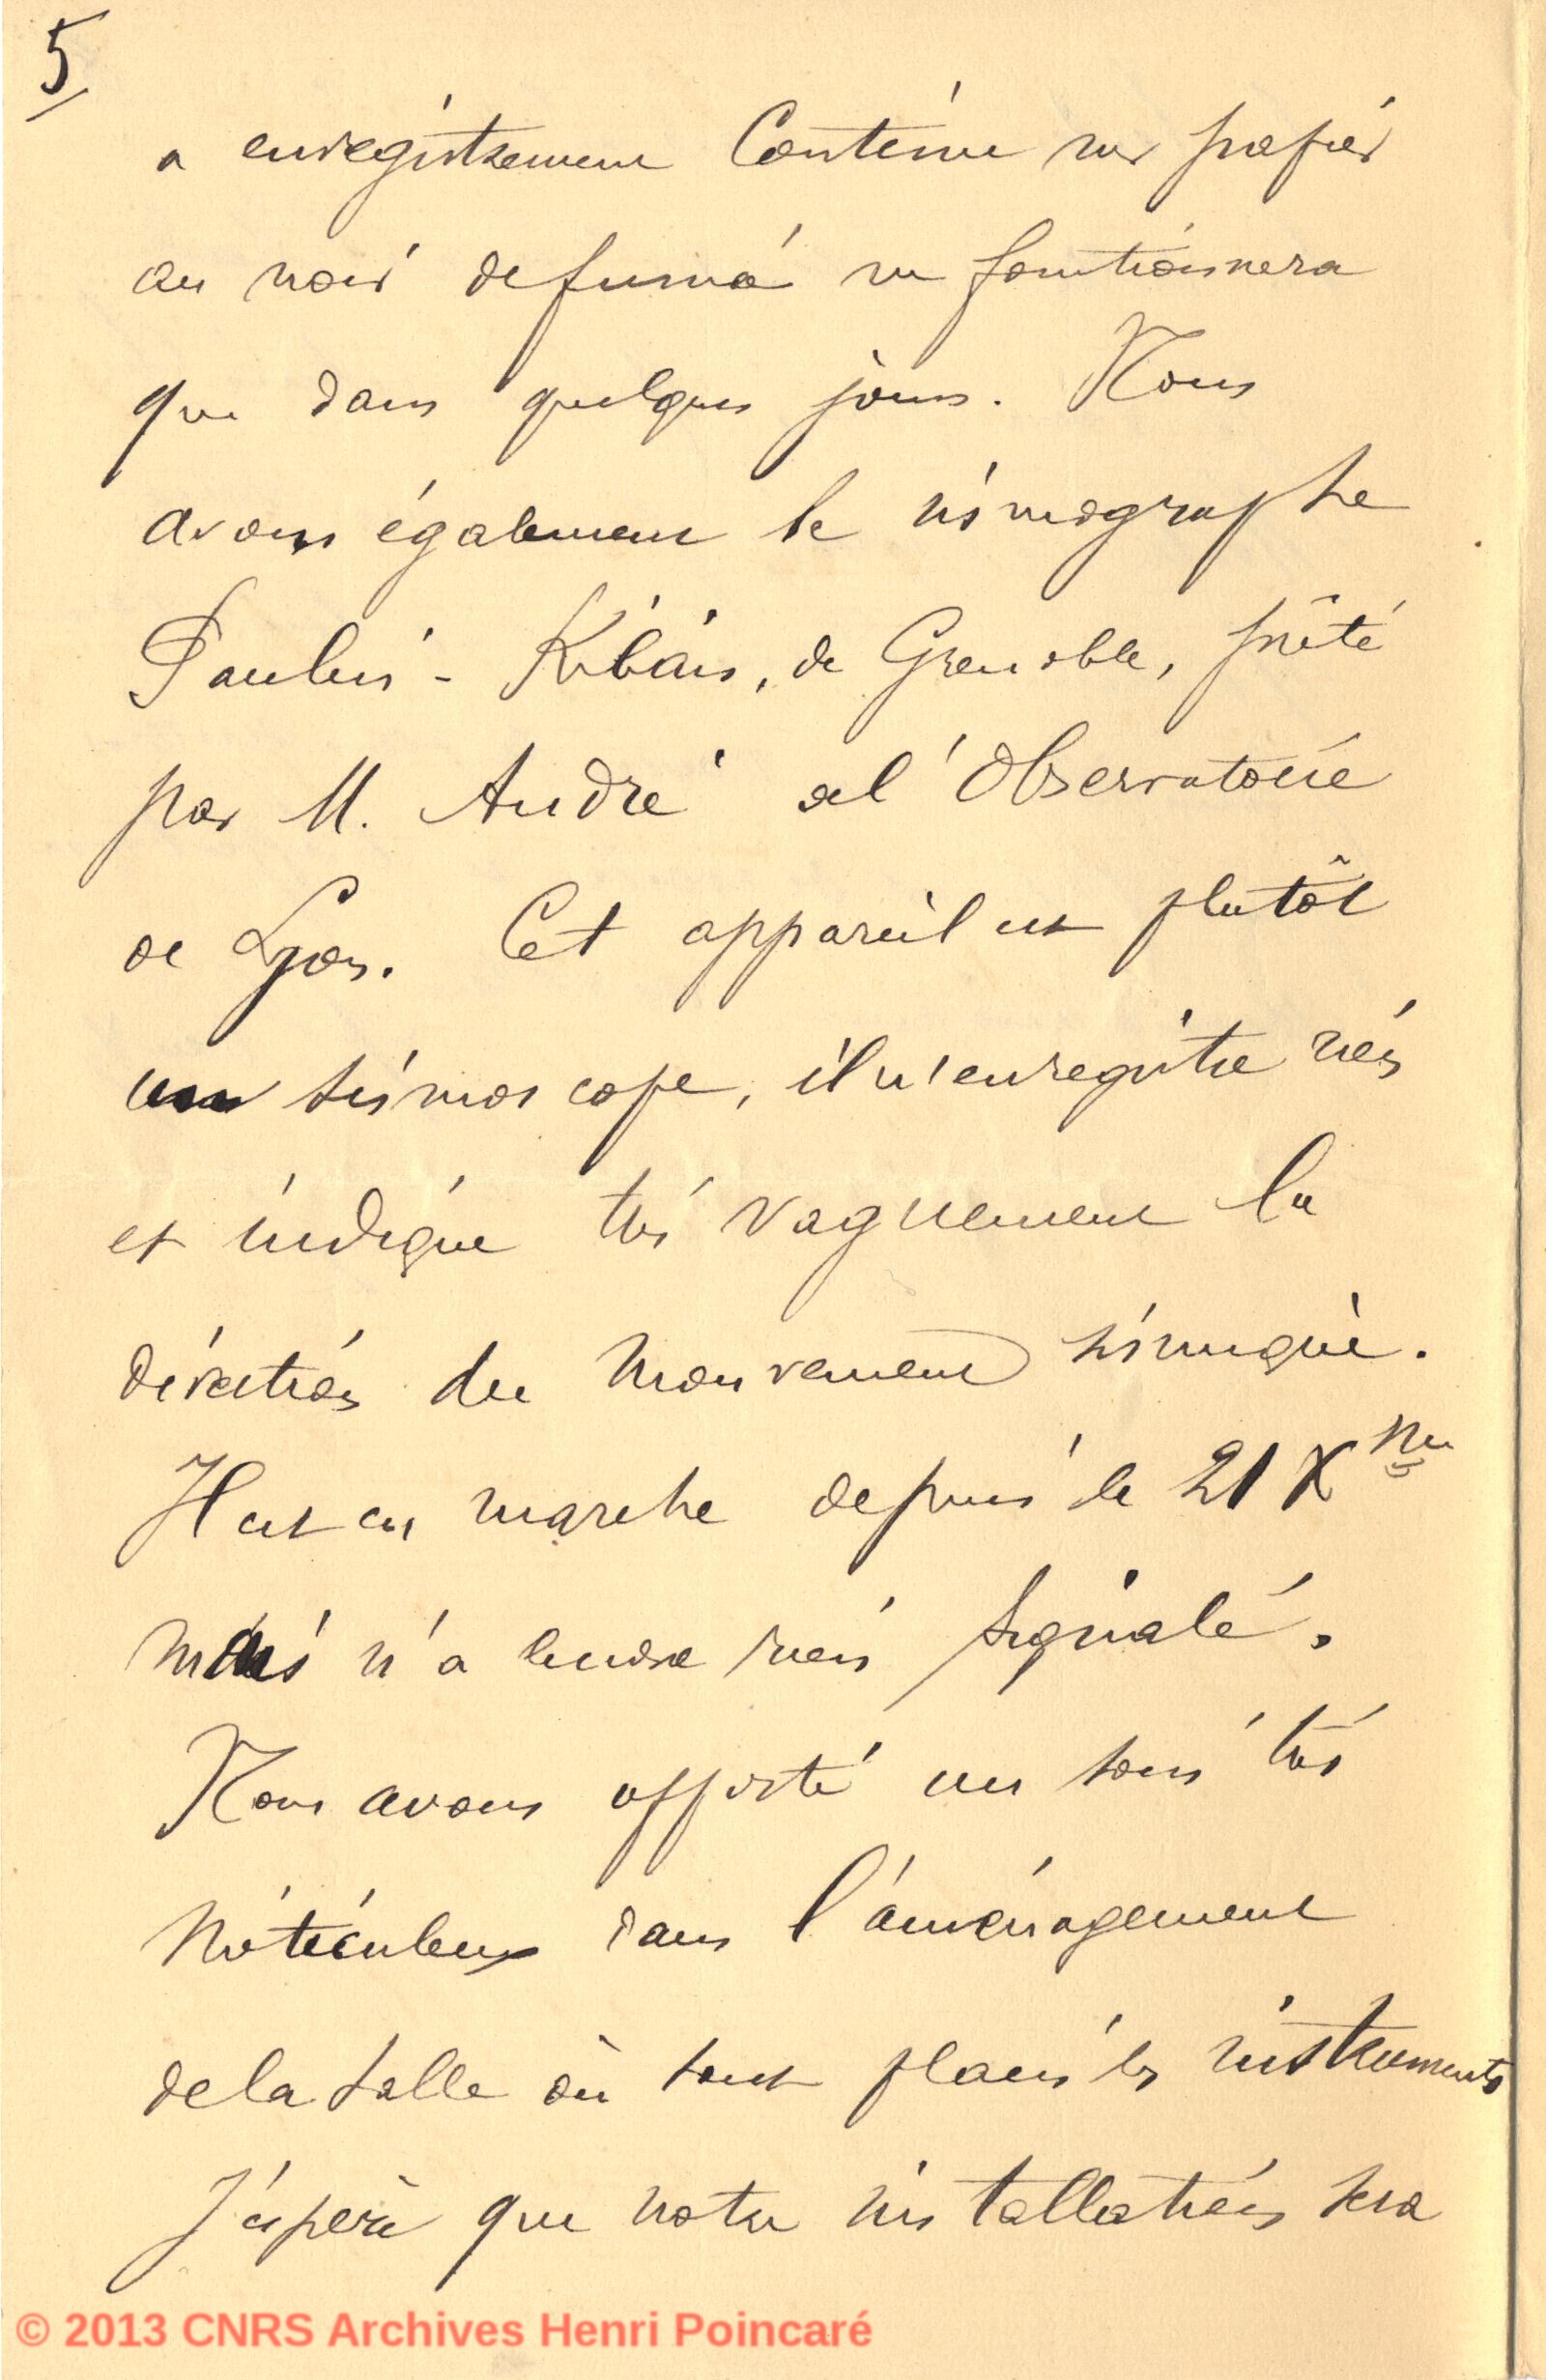 5
a enregistrement Continu sur papier
au noir de fumée ne fonctionnera
que dans quelques jours. Nous
avons également le sismographe
Paulin - Kilian, de Grenoble, prêté
par M. André de l'Observatoire
de Lyon. Cet appareil est plutôt
un sismoscope, il n'enregistre rien
et indique très vaguement la
direction du Mouvement sismique.
Il est en marche depuis le 21 Xbre
mais n'a encore rien signalé.
Nous avons apporté un soin très
Méticuleux dans l'aménagement
de la salle où sont placés les instruments
J'espère que notre installation sera
© 2013 CNRS Archives Henri Poincaré